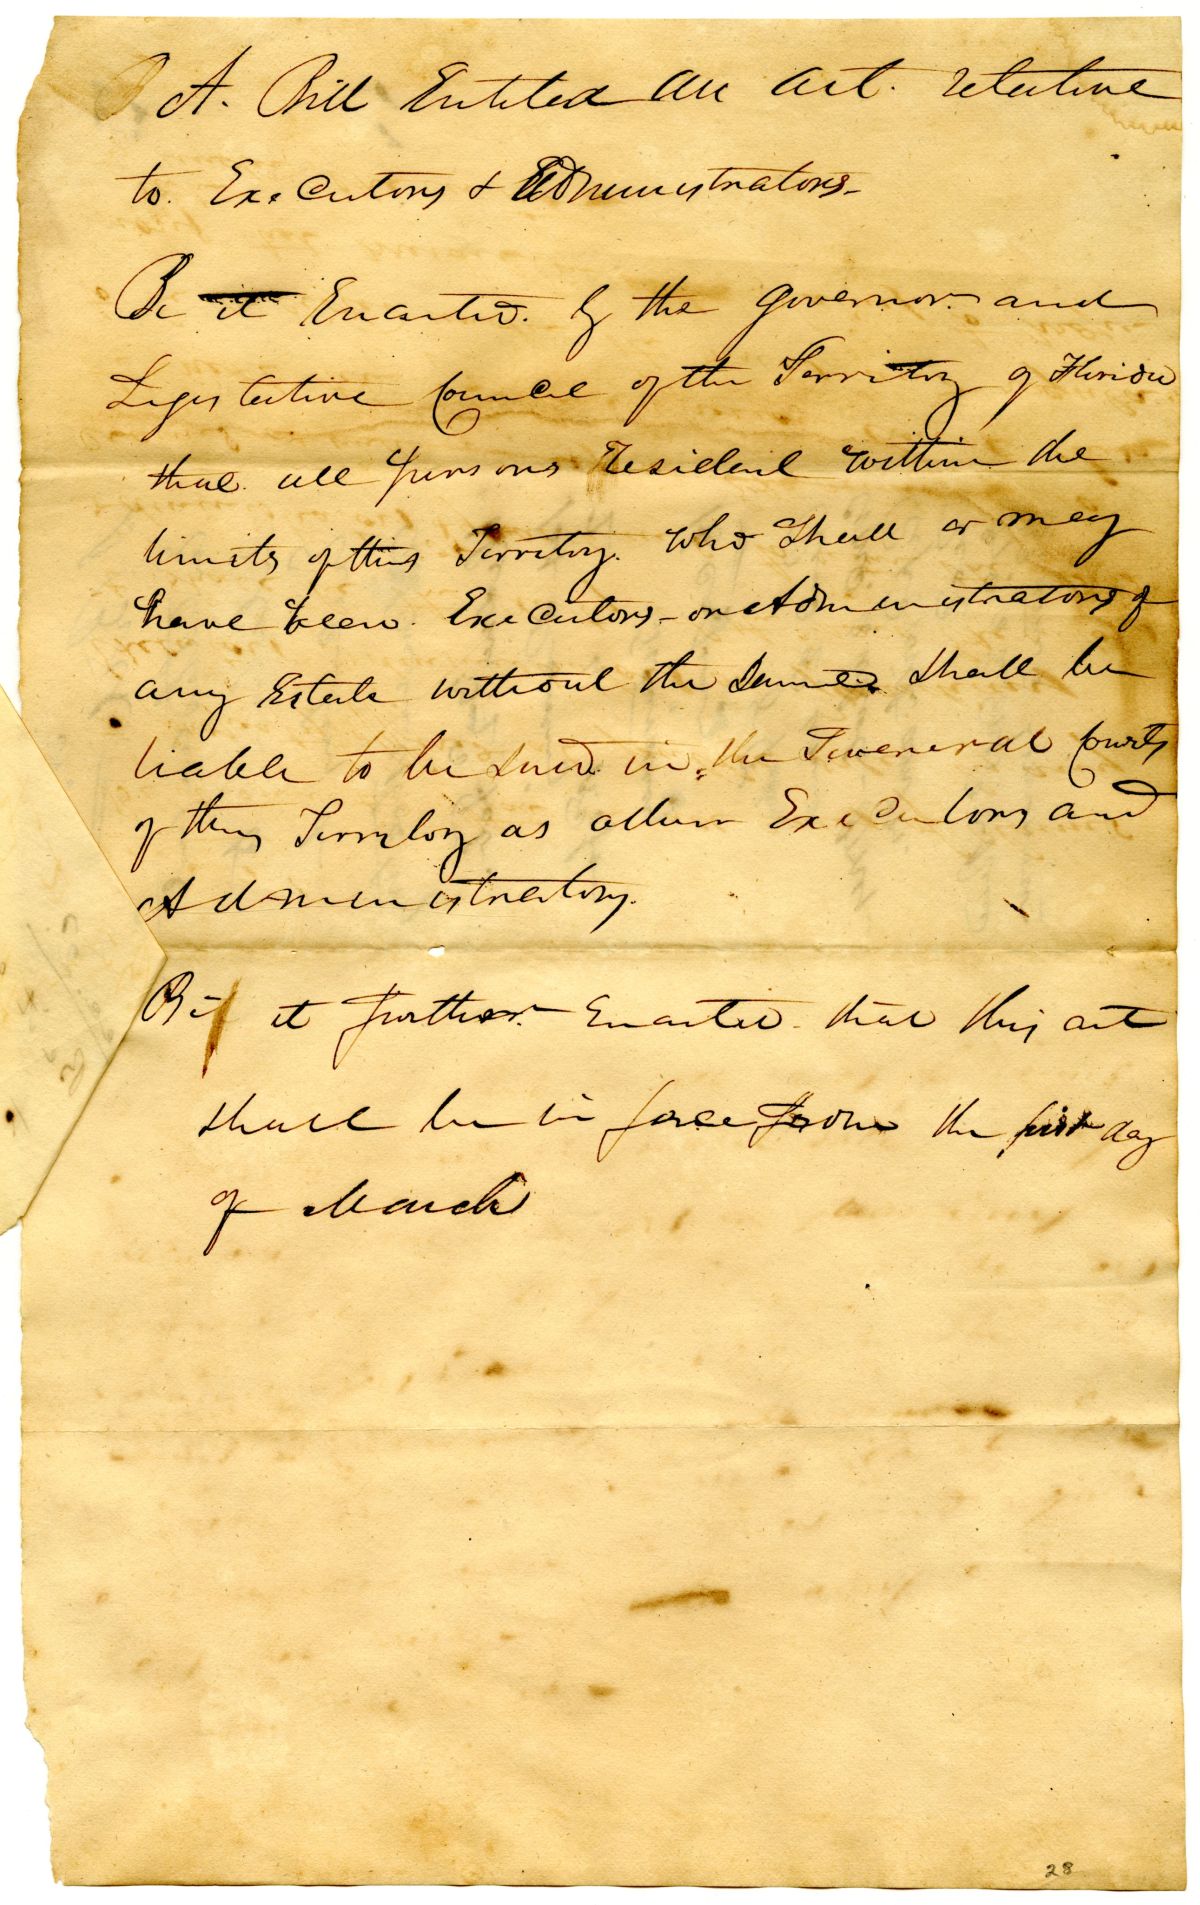 A. Bill Entitled an act. relative
to. Executors & Administrators.
Be it Enacted. by the Governor and
Legislative Council of the Territory of Florida
that all persons resident within the
limits of this Territory. who shall or may
have been Executors or Administrators of
any Estate without the Same shall be
liable to be sued in the Several Courts
of this Territory as other Executors and
Administrators.
Be it further Enacted that this act
shall be in force from the first day
of March
28